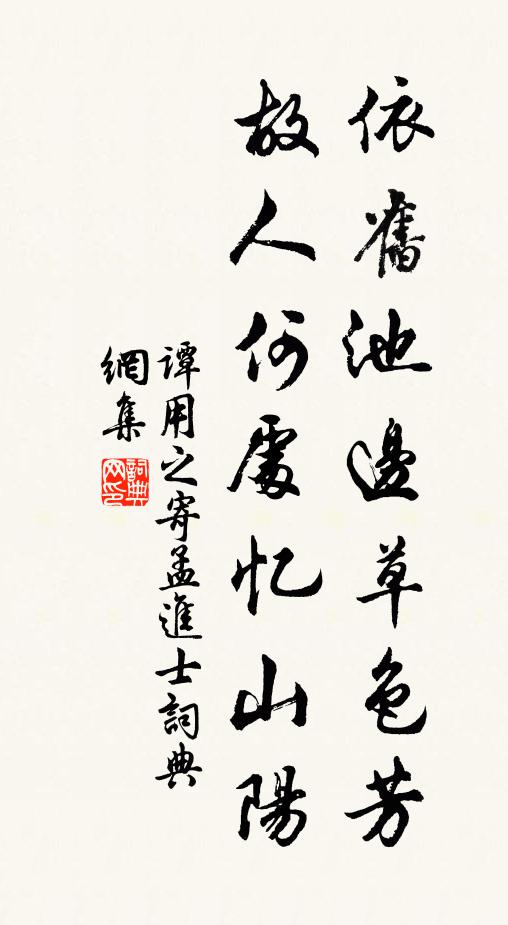 依舊池邊草色芳
故人何處忆山陽
谭用之寄孟進士詞典
網集
詞典
网印